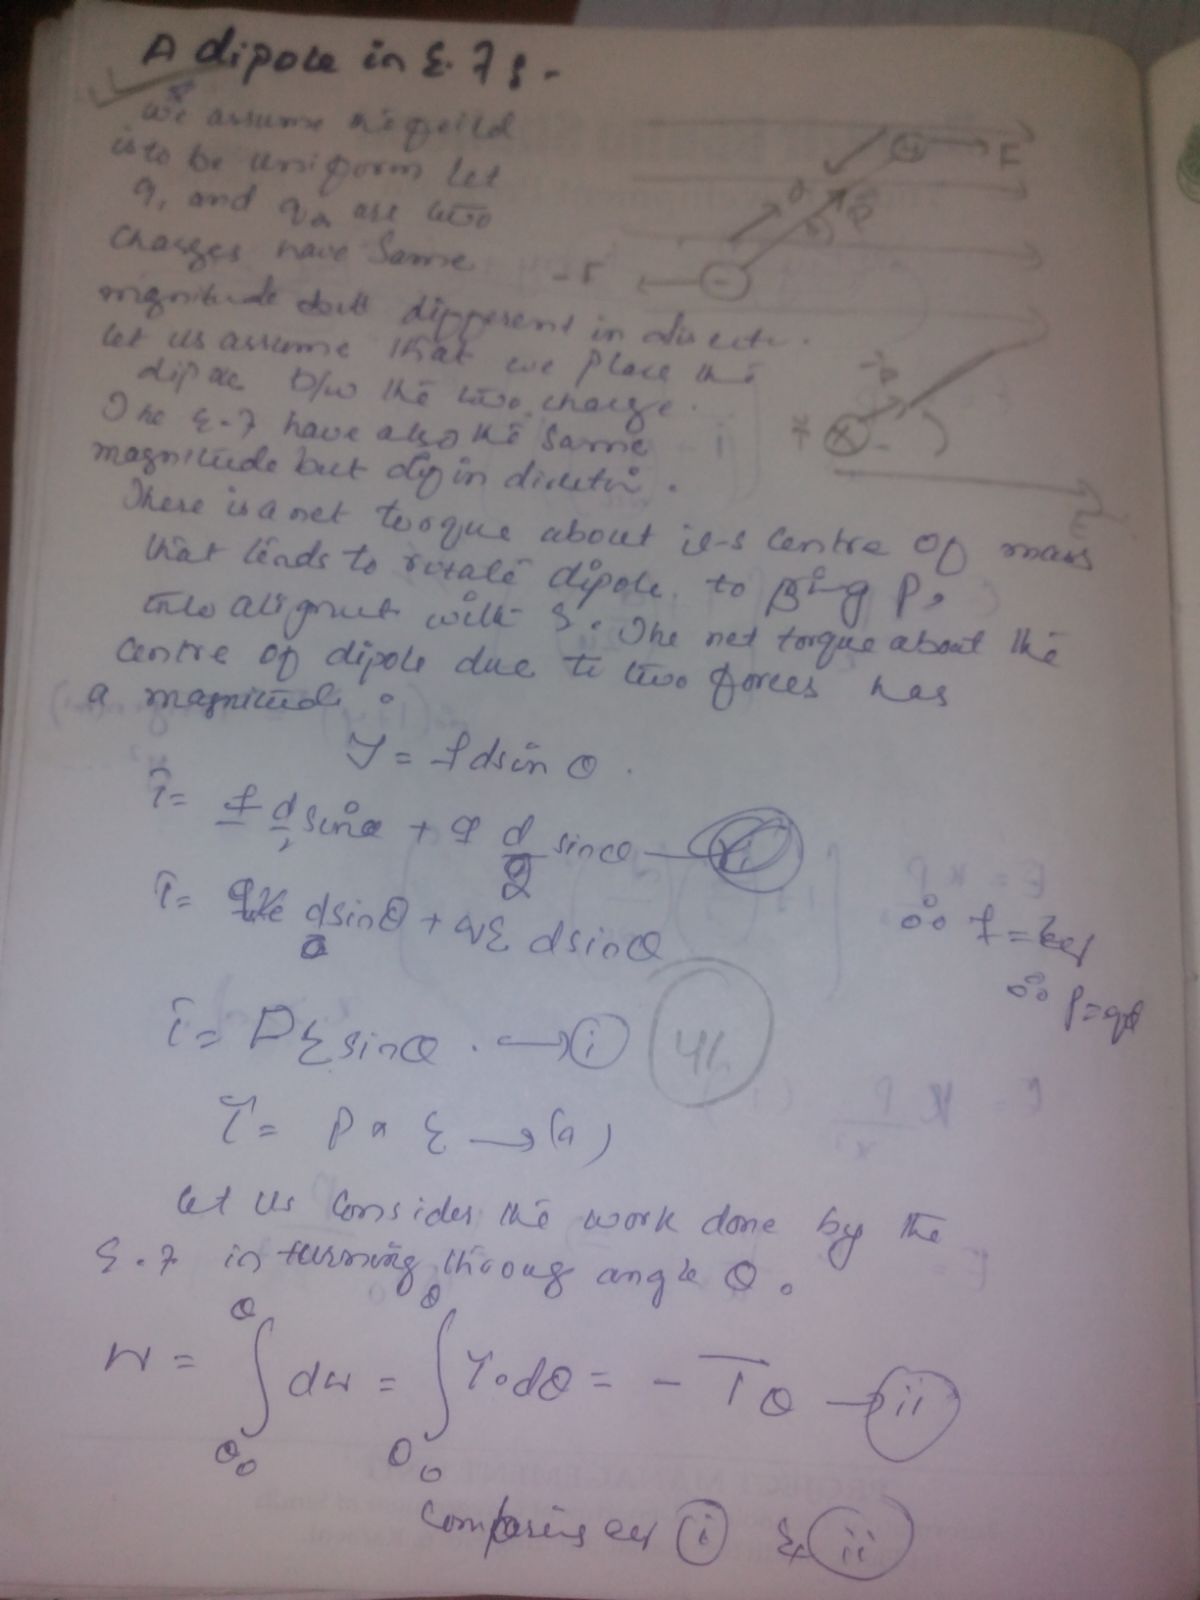 A dipole in E.F :-
We assume the feild
is to be uniform let
q, and q₂ are two
charges have same
magnitude but different in directi.
let us assume that we place the
dipole b/w the two charge.
The E.F have also the same
magnitude but dif in directi.
There is a net torque about it-s centre of mass
that tends to rotate dipole. to bring P,
into alignmet with E. The net torque about the
centre of dipole due to two forces has
a magnitude :
F
-F
τ = f d sin θ .
τ = f d sin θ + f d/2 sin θ
τ = d sin θ + qE d sin θ
∴ f = Eq
∴ p = qd
τ = P E sin θ . → (i)
τ = P × E → (a)
let us consider the work done by the
E.F in turning throug angle θ.
W = ∫ dw = ∫ τ. dθ = - τ θ → (ii)
θ θ
θ₀ θ₀
Comparing eq (i) & (ii)